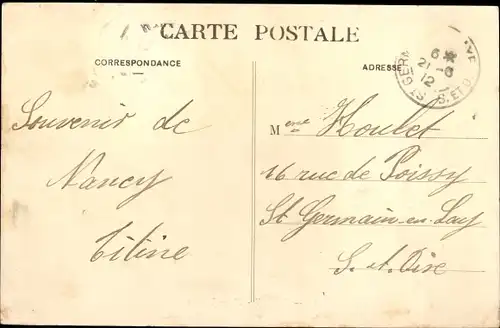 CARTE POSTALE
CORRESPONDANCE
ADRESSE
ST GERM
6 *
21 - 6
12
S. ET O.
Souvenir de
Nancy
Titine
Mme Houlet
16 rue de Poissy
St Germain-en-Lay
S. et. Oise